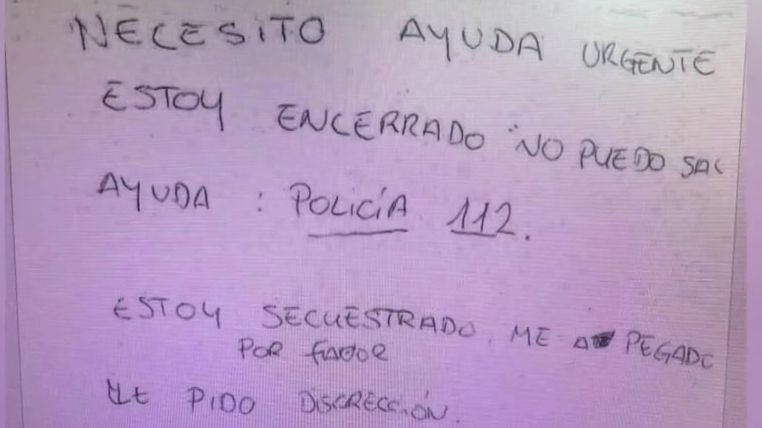 NECESITO AYUDA URGENTE
ESTOY ENCERRADO NO PUEDO SAL
AYUDA : POLICÍA 112.
ESTOY SECUESTRADO. ME A PEGADO
POR FAVOR
LE PIDO DISCRECCIÓN.